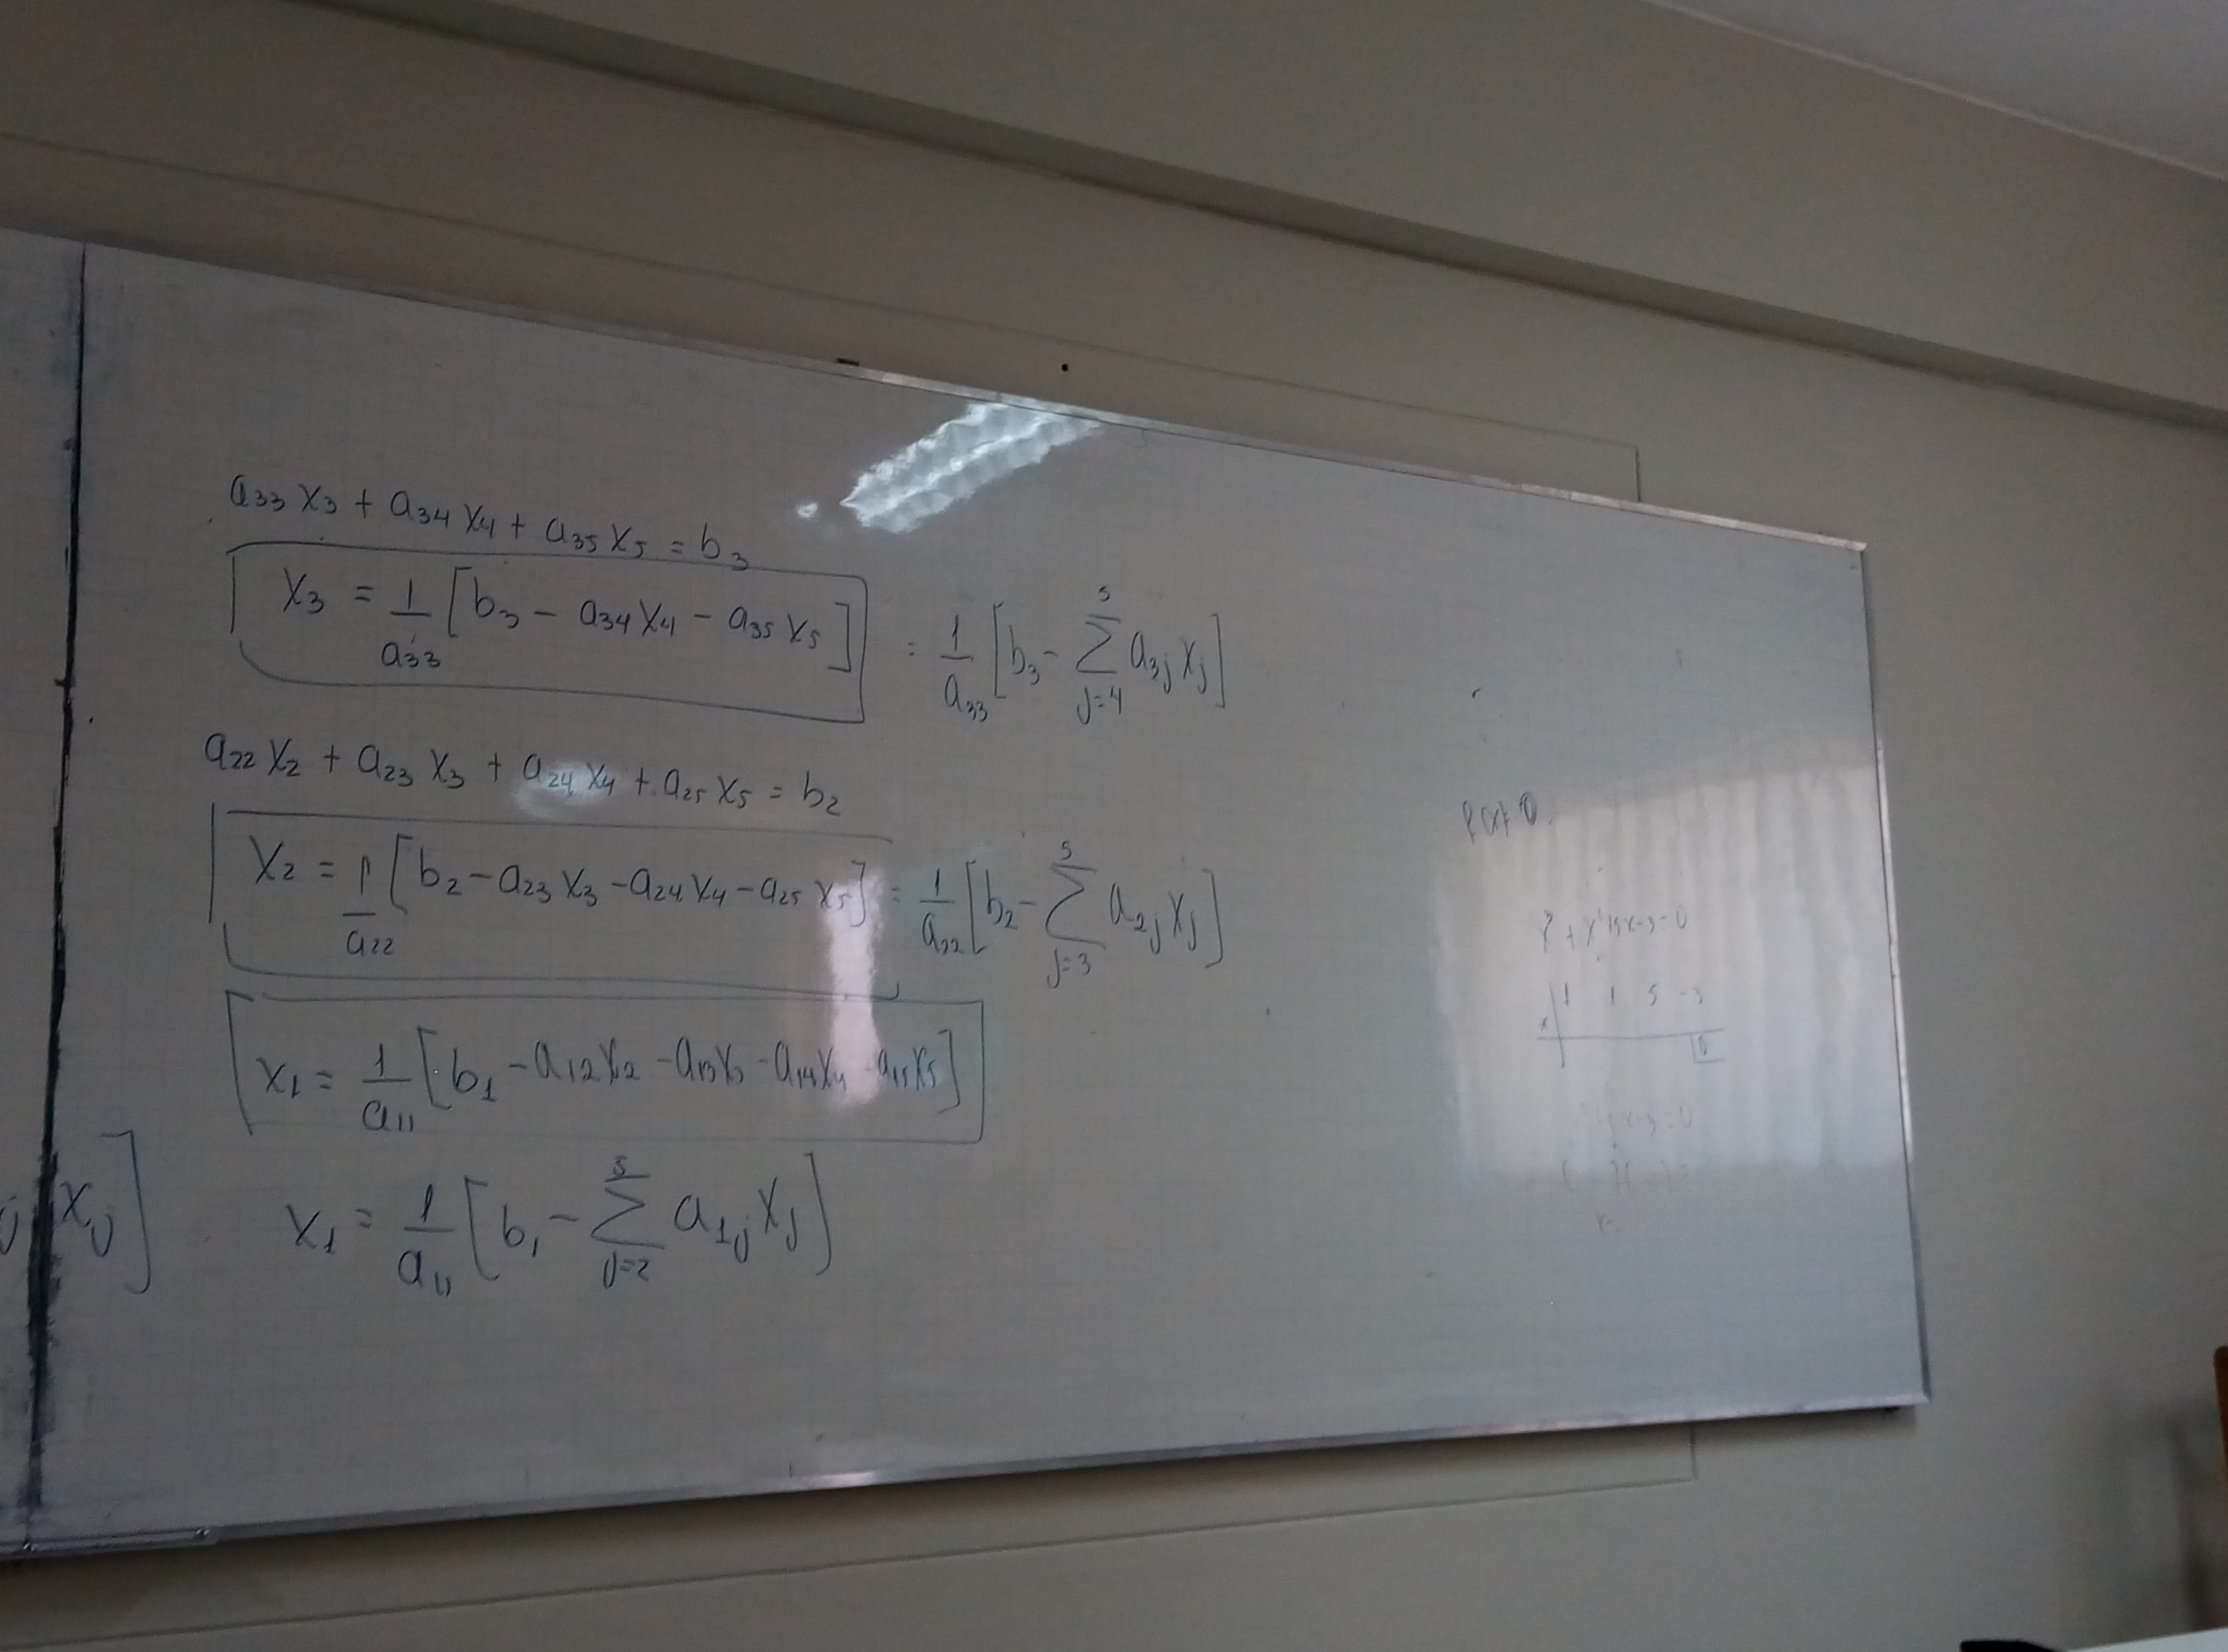 a₃₃ x₃ + a₃₄ x₄ + a₃₅ x₅ = b₃
x₃ = 1/a₃₃ [b₃ - a₃₄ x₄ - a₃₅ x₅] = 1/a₃₃ [b₃ - ∑_{j=4}^{5} a₃ⱼ xⱼ]
a₂₂ x₂ + a₂₃ x₃ + a₂₄ x₄ + a₂₅ x₅ = b₂
x₂ = 1/a₂₂ [b₂ - a₂₃ x₃ - a₂₄ x₄ - a₂₅ x₅] = 1/a₂₂ [b₂ - ∑_{j=3}^{5} a₂ⱼ xⱼ]
x₁ = 1/a₁₁ [b₁ - a₁₂ x₂ - a₁₃ x₃ - a₁₄ x₄ - a₁₅ x₅]
j xⱼ]
x₁ = 1/a₁₁ [b₁ - ∑_{j=2}^{5} a₁ⱼ xⱼ]
1 1 5 -3
0